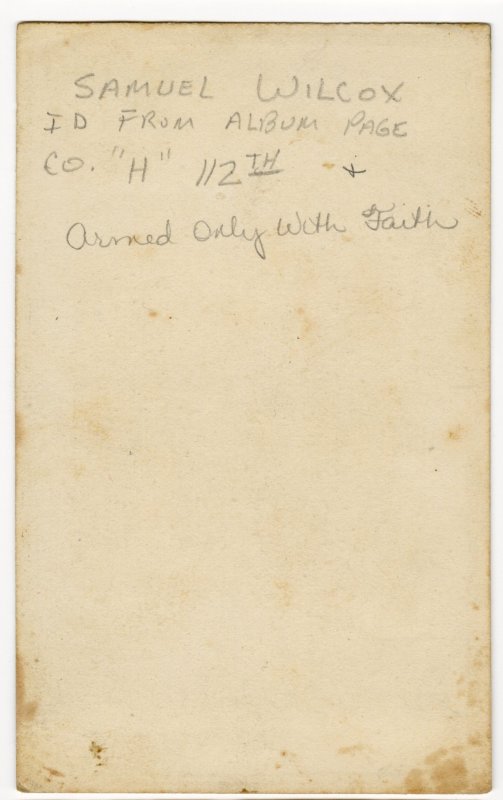 SAMUEL WILCOX
ID FROM ALBUM PAGE
CO. "H" 112TH +
Armed Only With Faith